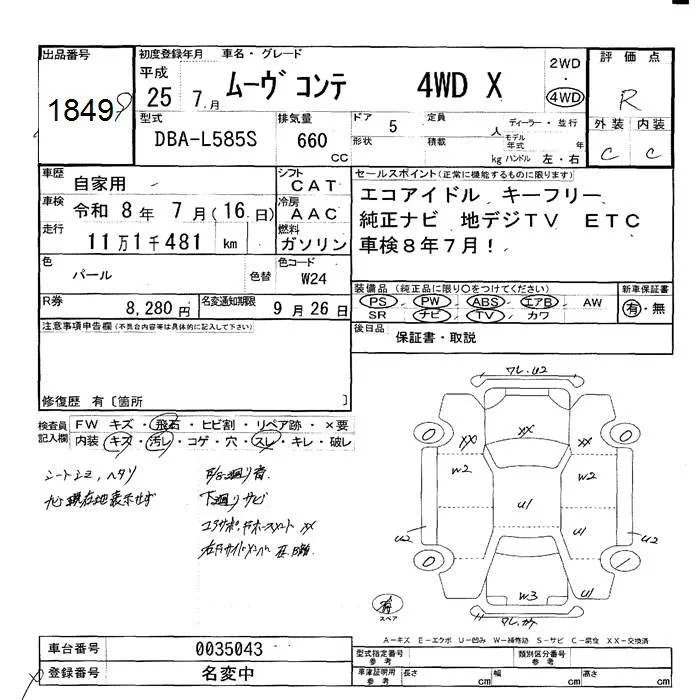 出品番号 初度登録年月 車名・グレード 評価点
18499 平成 25 7.月 ムーヴ コンテ 4WD X 2WD ・ 4WD R
型式 排気量 ドア 定員 ディーラー・並行 外装 内装
DBA-L585S 660 CC 5 人 モデル年式 年 C C
形状 積載 kg ハンドル 左・右
車歴 自家用 シフト CAT セールスポイント(正常に機能するものに限ります)
車検 令和 8年 7月(16日) 冷房 AAC エコアイドル キーフリー
走行 11万1千481 km 燃料 ガソリン 純正ナビ 地デジTV ETC
車検8年7月!
色 パール 色替 色コード W24
装備品(純正品に限り○をつけてください) 新車保証書
PS PW ABS エアB AW 有・無
SR ナビ TV カワ
R券 8,280円 名変通知期限 9月26日
後日品 保証書・取説
注意事項申告欄(不具合内容等は具体的に記入して下さい)
修復歴 有〔箇所 〕
検査員記入欄 FW キズ・飛石・ヒビ割・リペア跡・×要
内装 キズ・汚レ・コゲ・穴・スレ・キレ・破レ
シートシミ、ヘタリ
ナビ現在地表示せず
下廻りサビ
ワレ、U2
XX XX XX
W2 W2
U1 U1
U2 U2
W3 U1
有
スペア
A-キズ E-エクボ U-凹み W-補修跡 S-サビ C-腐食 XX-交換済
車台番号 0035043 型式指定番号 参考 類別区分番号 参考
登録番号 名変中 車庫証明用 参考 長さ cm 幅 cm 高さ cm